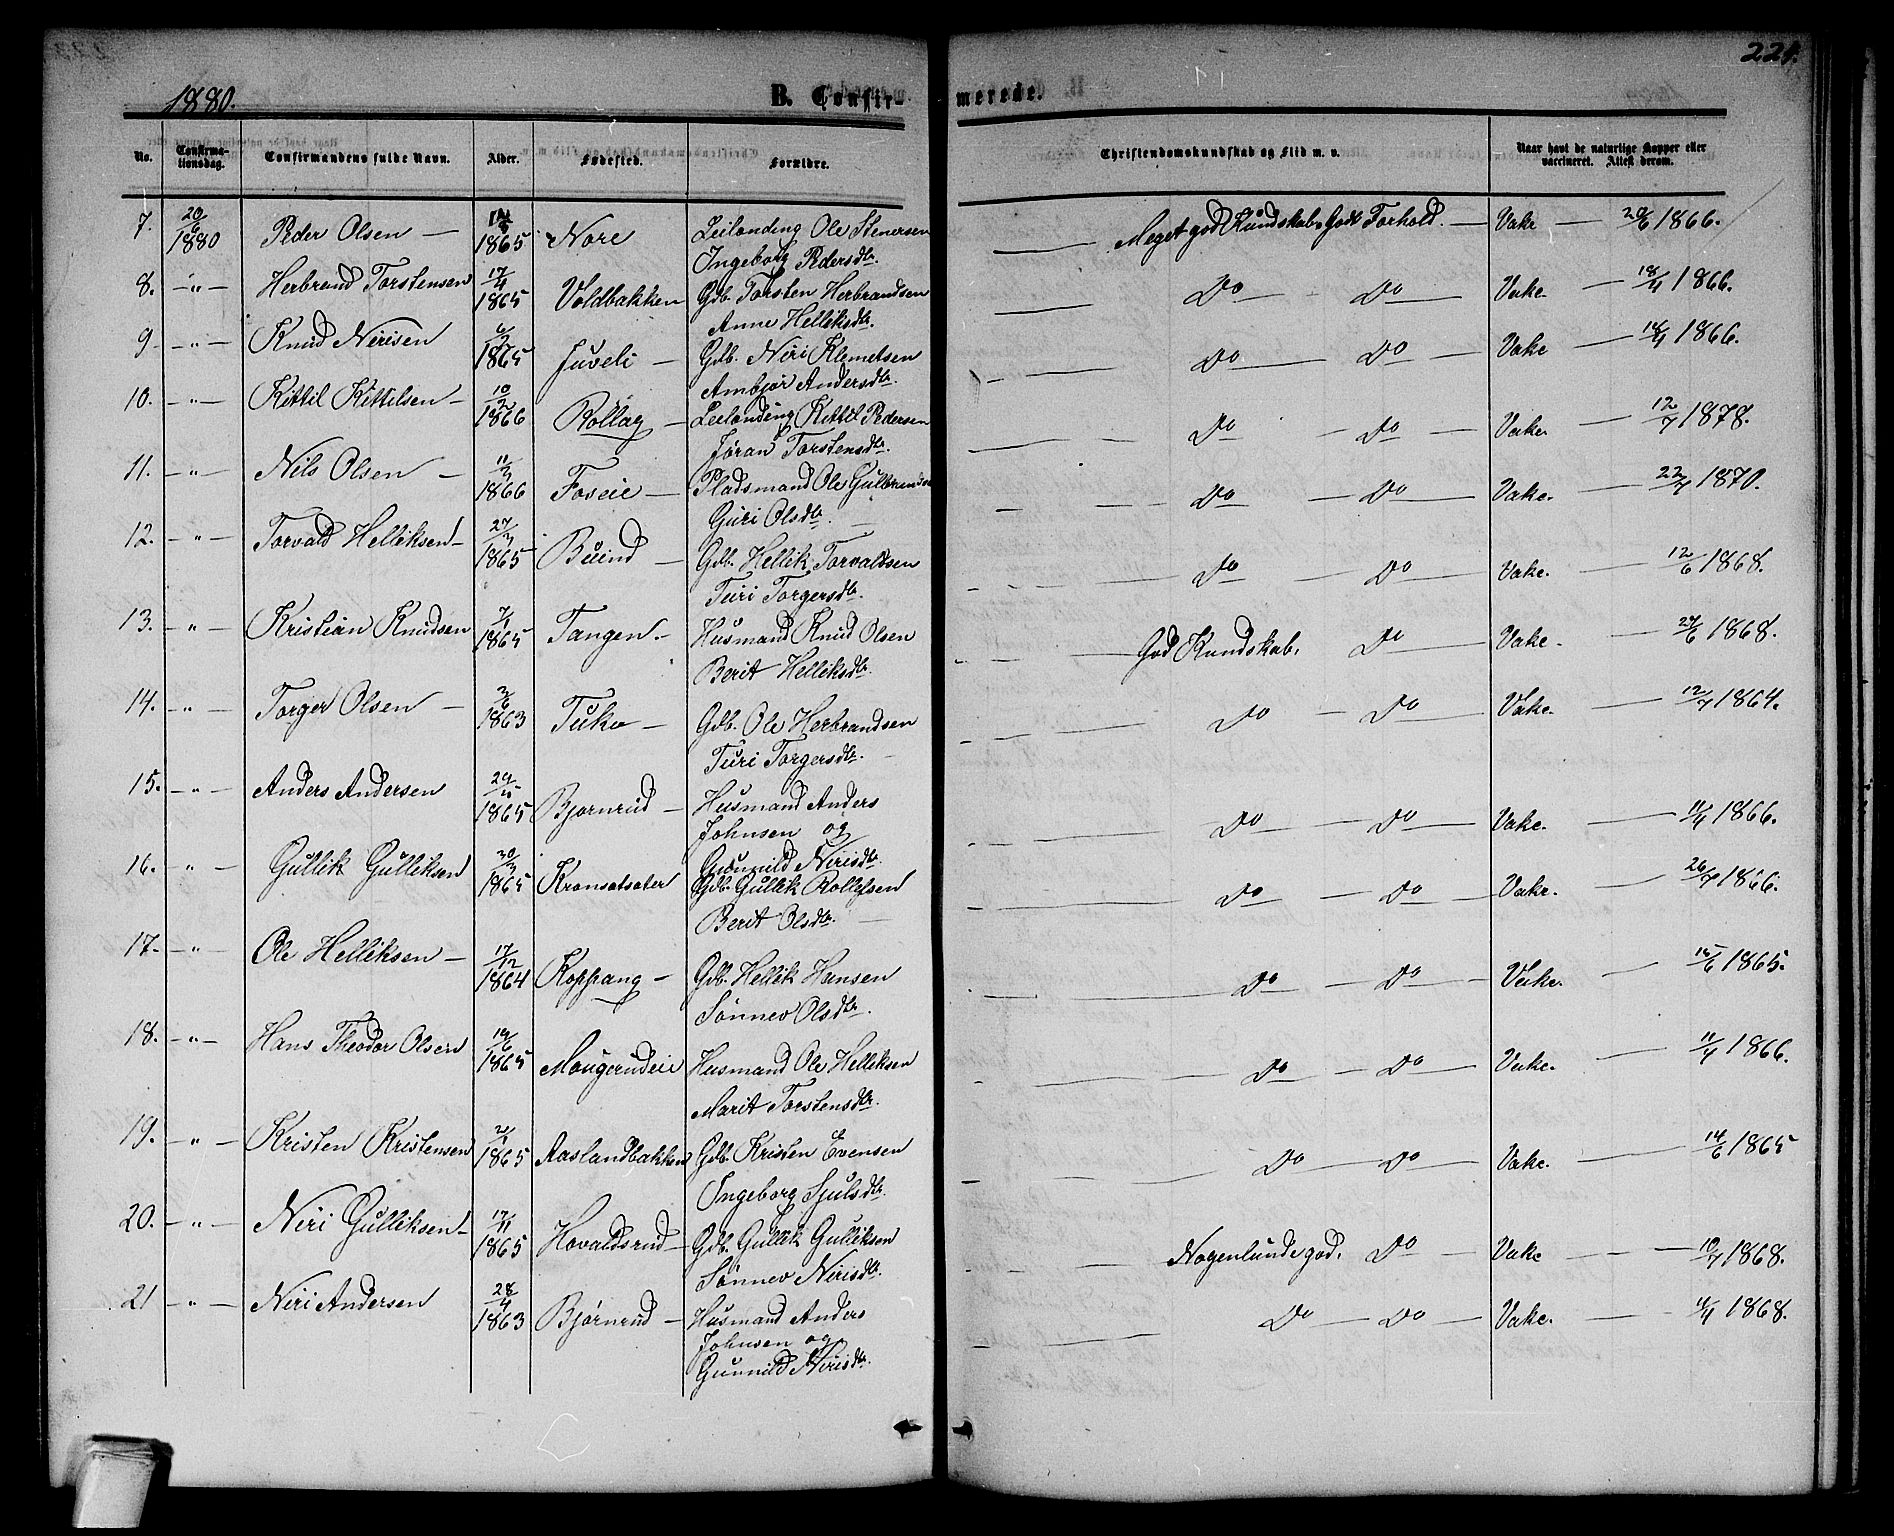 1880.
B. Confir-
merede.
221.
No.
Confirma-
tionsdag.
Confirmandens fulde Navn.
Alder.
Fødested.
Forældre.
Christendomskundskab og Flid m. v.
Naar havt de naturlige Kopper eller
vaccineret. Attest derom.
7. 20/6 1880 Peder Olsen — 1865 Nore Leilending Ole Stenersen
Ingeborg Pedersdtr.
Meget god Kundskab, Godt Forhold. — Vake — 20/6 1866.
8. — " — Herbrand Torstensen 17/4 1865 Voldbakken Gdb. Torsten Herbrandsen
Anne Helliksdtr.
Do — Do — Vake. 18/4 1866.
9. — " — Knud Nirisen 1865 Juveli — Gdb. Niri Klemetsen
Ambjør Andersdtr.
Do — Do — Vake 18/4 1866.
10. — " — Kittil Kittilsen — 10/2 1866 Rollag — Leilending Kittil Pedersen
Jøran Torstensdtr.
Do — Do — Vake. 12/7 1878.
11. — " — Nils Olsen — 11/3 1866 Foseie — Pladsmand Ole Gulbrands
Guri Olsdtr.
Do — Do — Vake. — 22/7 1870.
12. — " — Torvald Helliksen — 27/3 1865 Buind — Gdb. Hellik Torvaldsen
Turi Torgersdtr.
Do — Do — Vake. 12/6 1868.
13. — " — Kristian Knudsen 7/1 1865 Tangen — Husmand Knud Olsen
Berit Helliksdtr.
God Kundskab. Do — Vake. — 27/6 1868.
14. — " — Torger Olsen — 3/6 1863 Tuko — Gdb. Ole Herbrandsen
Turi Torgersdtr.
Do — Do — Vake. — 12/7 1864.
15. — " — Anders Andersen 1865 Bjørnrud — Husmand Anders
Johnsen og
Gunnild Nirisdtr.
Do — Do — Vake. — 11/4 1866.
16. — " — Gullik Gulliksen 30/3 1865 Gdb. Gullik Rollefsen
Berit Olsdtr.
Do — Do — Vake. — 26/7 1866.
17. — " — Ole Helliksen — 17/12 1864 Koppang — Gdb. Hellik Hansen
Sønnev Olsdtr.
Do — Do — Vake. — 1865.
18. — " — Hans Theodor Olsen 19/6 1865 Mougerudeie Husmand Ole Helliksen
Marit Torstensdtr.
Do — Do — Vake. — 11/4 1866.
19. — " — Kristen Kristensen 2/1 1865 Aaslandbakken Gdb. Kristen Evensen
Ingeborg Sjulsdtr.
Do — Do — Vake. — 14/6 1865
20. — " — Niri Gulliksen — 17/11 1865 Hovaldsrud — Gdb. Gullik Gulliksen
Sønnev Nirisdtr.
Nogenlunde god. Do — Vake — 10/7 1868.
21 — " — Niri Andersen 28/4 1863 Bjørnrud — Husmand Anders
Johnsen og
Gunnild Nirisdtr.
Do — Do — Vake. — 1868.